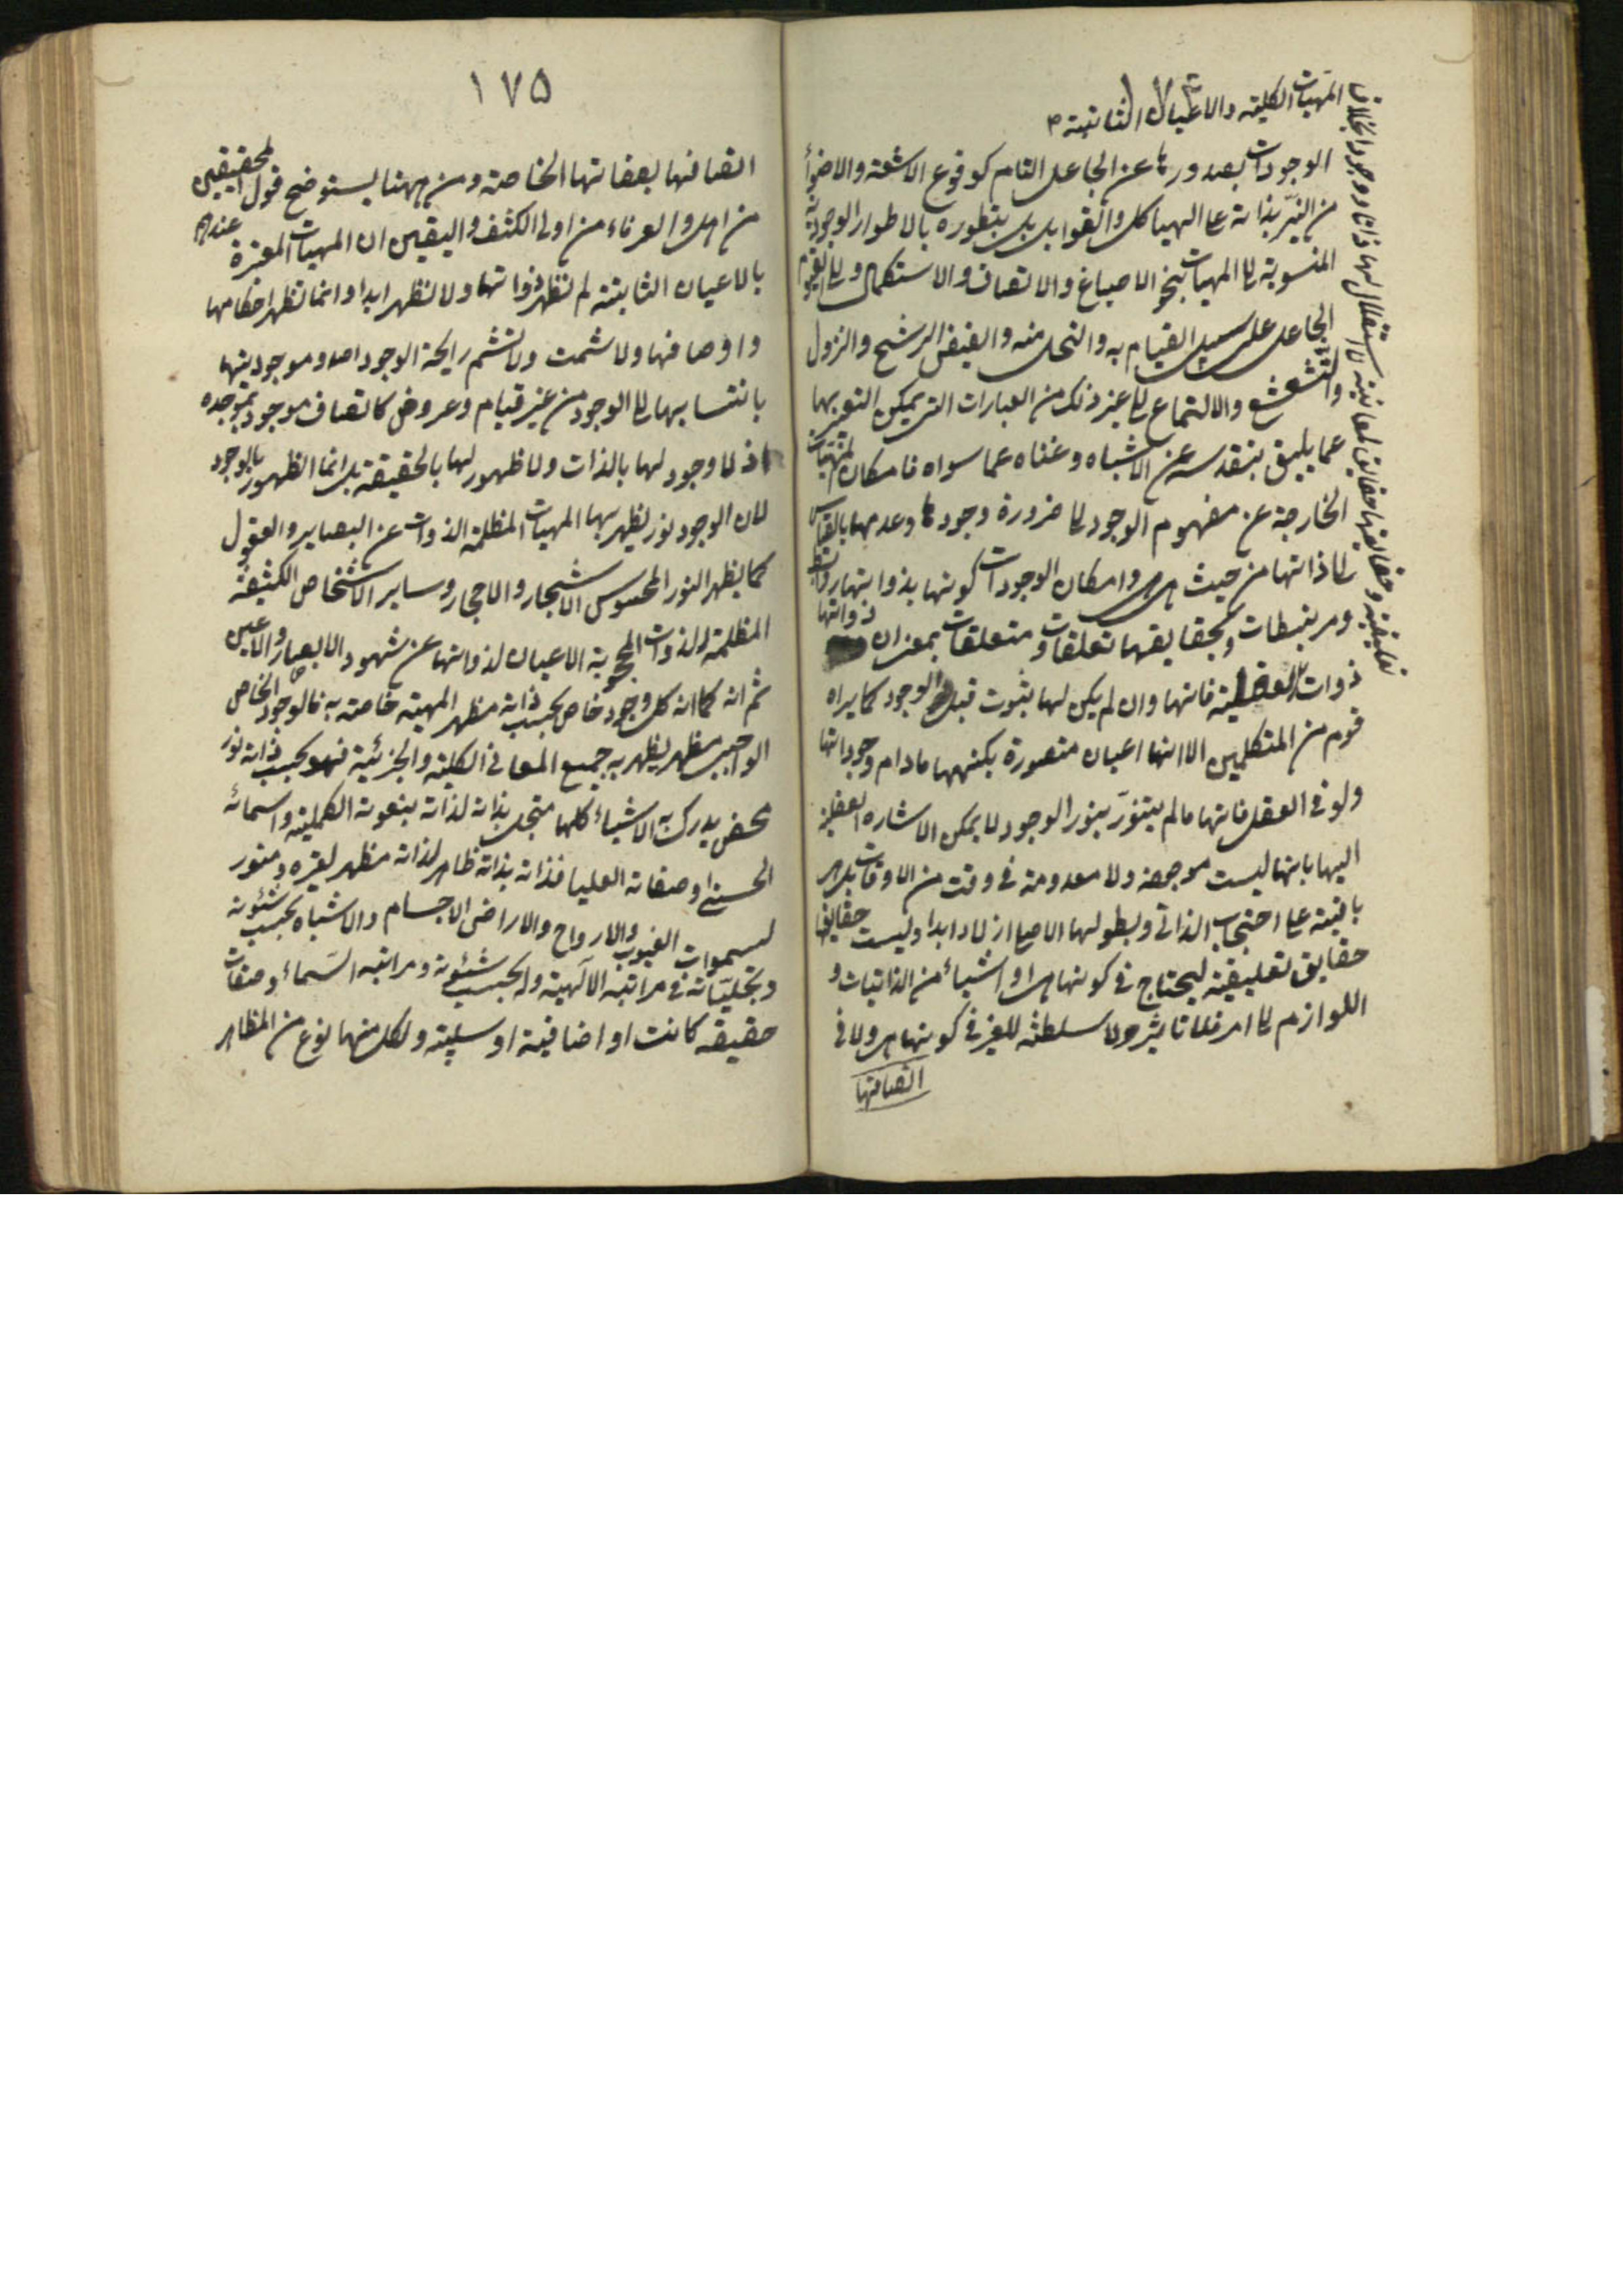 المهيات الكلية والاعيان الثابتة
الوجودات بصدورها عن الجاعل التام كوقوع الاشعة والاضوآء
من النيّر بذاته على الهياكل والقوابل بل بتطوره بالاطوار الوجودية
المنسوبة الى المهيات بنحو الاصباغ والاتصاف والاستكمال والى القيوم
الجاعل على سبيل القيام به والنحل منه والفيض الرشح والنزول
والتشعشع والالتماع الى غير ذلك من العبارات التى يمكن التعبير بها
عما يليق بتقدسه عن الاشباه وغناه عما سواه فامكان المهيات
الخارجة عن مفهوم الوجود لا ضرورة وجودها وعدمها بالقياس
الى ذاتها من حيث هى هى وامكان الوجودات كونها بذواتها روابط
ومرتبطات وبحقايقها تعلقات ومتعلقات بمعنى ان ذواتها
ذوات فانها وان لم يكن لها ثبوت قبل الوجود كما يراه
قوم من المتكلمين الا انها اعيان متصورة بكنهها مادام وجوداتها
ولو فى العقل فانها ما لم يتنوّر بنور الوجود لا يمكن الاشاره العقلية
اليها بانها ليست موجودة ولا معدومة فى وقت من الاوقات بل هى
باقية على احتجابها الذاتى وبطولها الاصلى ازلا وابدا وليست حقايقها
حقايق تعليقية ليحتاج فى كونها هى او اشياء من الذاتيات و
اللوازم الى امر فلا تاثير ولا سلطنة للغير فى كونها هى ولا فى
اتصافها
تعليقية وحقايقها حقايق لمعانية لا استقلال لها ذاتا ووجودا بخلاف
١٧٥
اتصافها بصفاتها الخاصة ومن ههنا يستوضح قول المحققين
من اهل والعرفاء من اولى الكشف واليقين ان المهيات المعبرة عندهم
بالاعيان الثابتة لم تظهر ذواتها ولا تظهر ابدا وانما تظهر احكامها
واوصافها ولا شمت ولا تشم رايحة الوجود اصلا وموجوديتها
بانتسابها الى الوجود من غير قيام وعروض كاتصاف موجود بموجده
اذ لا وجود لها بالذات ولا ظهور لها بالحقيقة بل انما الظهور بالوجود
لان الوجود نور يظهر بها المهيات المظلمة الذوات عن البصاير والعقول
كما يظهر النور المحسوس الاشجار والاحجار وساير الاشخاص الكثيفة
المظلمة الذوات المحجوبة الاعيان لذواتها عن شهود الابصار والاعين
ثم انه كما ان كل وجود خاص بحسب ذاته مظهر المهية خاصة به فالوجود الخاص
الواجبى مظهر يظهر به جميع المعانى الكلية والجزئية فهو بحسب ذاته نور
محض يدرك به الاشياء كلها متجل بذاته لذاته بنعوته الكملية واسمائه
الحسنى وصفاته العليا فذاته بذاته ظاهر لذاته مظهر لغيره ومنور
لسموات الغيوب والارواح والاراضى الاجسام والاشباه بحسب شئونه
وتجليّاته فى مراتبه الآلهية وله بحسب شئونه ومراتبه اسماء وصفات
حقيقه كانت او اضافية او سلبية ولكل منها نوع من المظاهر